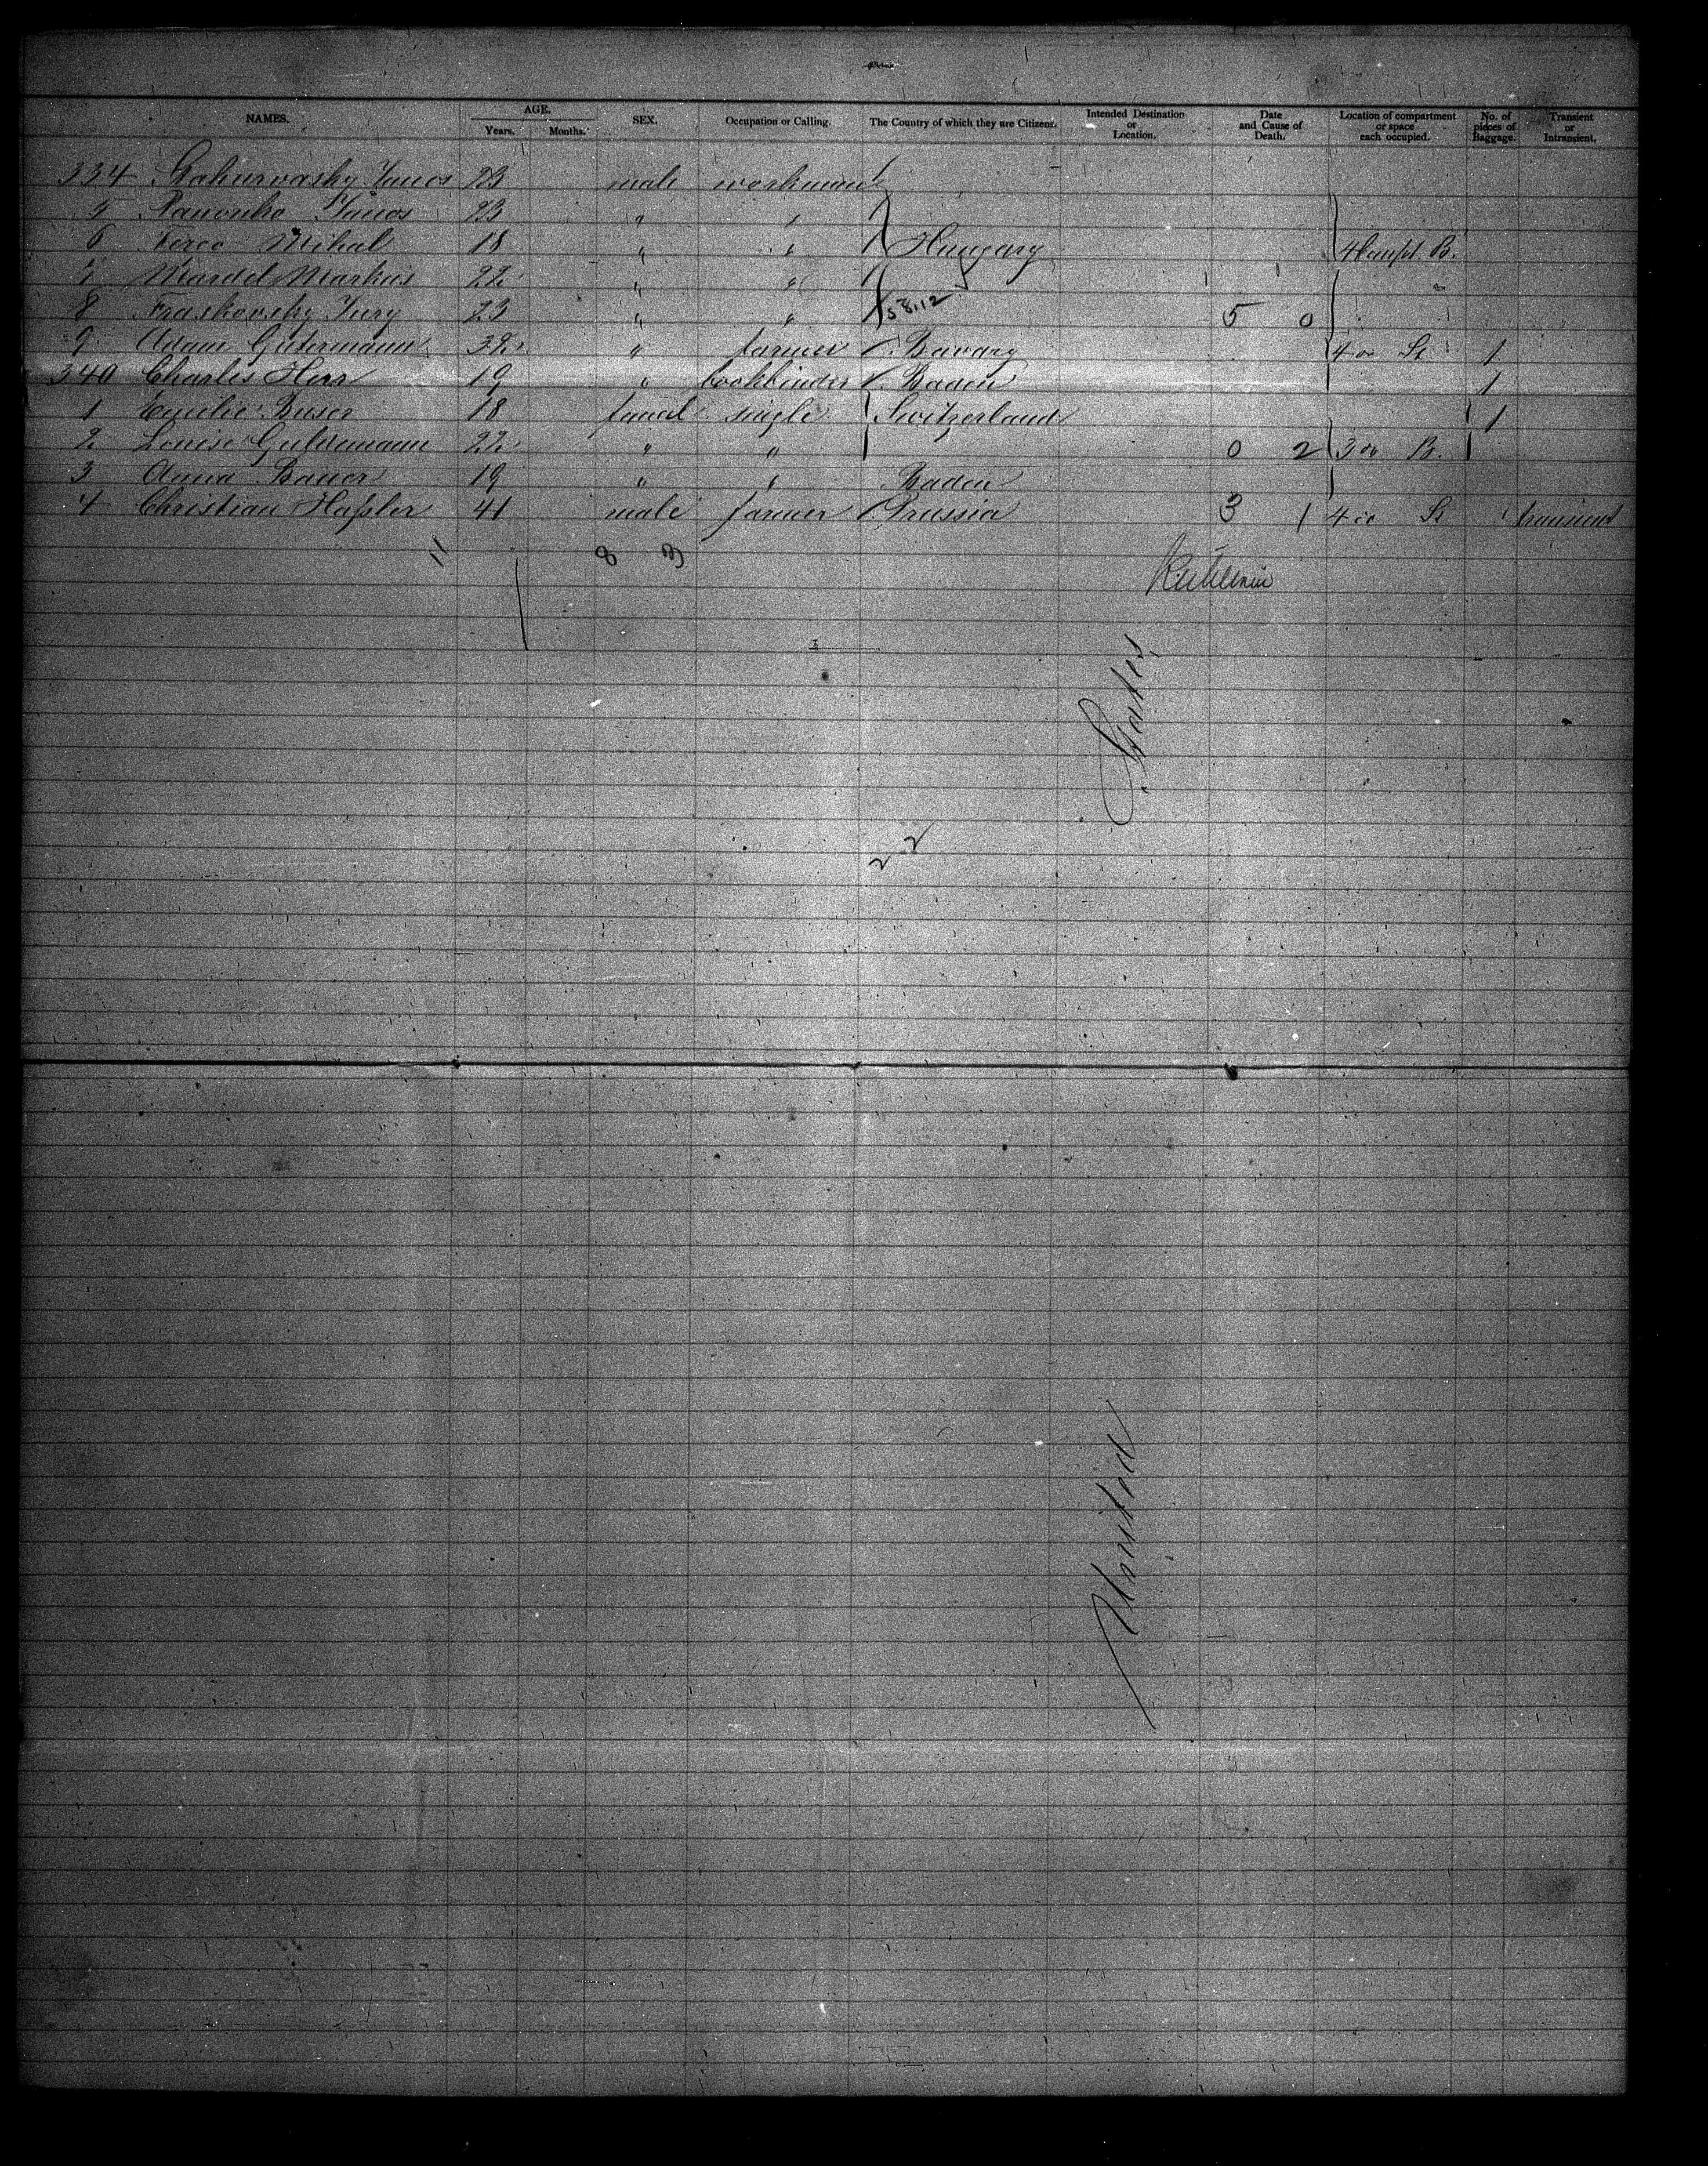 NAMES. AGE. Years. Months. SEX. Occupation or Calling. The Country of which they are Citizen. Intended Destination or Location. Date and Cause of Death. Location of compartment or space each occupied. No. of pieces of Baggage. Transient or Intransient.
334 Janos 23 male workman
5 Janos 23 " "
6 Mihal 18 " " Hungary B.
7 Mandel Markus 22 " "
8 Fraskovsky Jury 23 " " 5 0
9 Adam Gutermann 32 " farmer Bavary 4 St 1
340 Charles Herr 19 " bookbinder Baden 1
1 Emilie Buser 18 femal single Switzerland 1
2 Louise Gutermann 22 " " 0 2 3 B.
3 Anna Bauer 19 " " Baden
4 Christian Haßler 41 male farmer Prussia 3 1 4 St transient
11 8 3
States
2 2
United